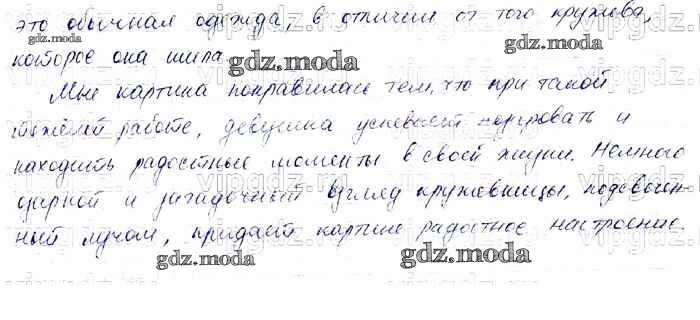 это обычная одежда, в отличии от того кружева,
которое она шила
gdz.moda
gdz.moda
gdz.moda
Мне картина понравилась тем, что при такой
тяжёлой работе, девушка успевает и
находить радостные моменты в своей жизни. Немного
и загадочный взгляд кружевницы, подсвечен-
ный лучом, придаёт картине радостное настроение.
gdz.moda
gdz.moda
vipgdz.ru